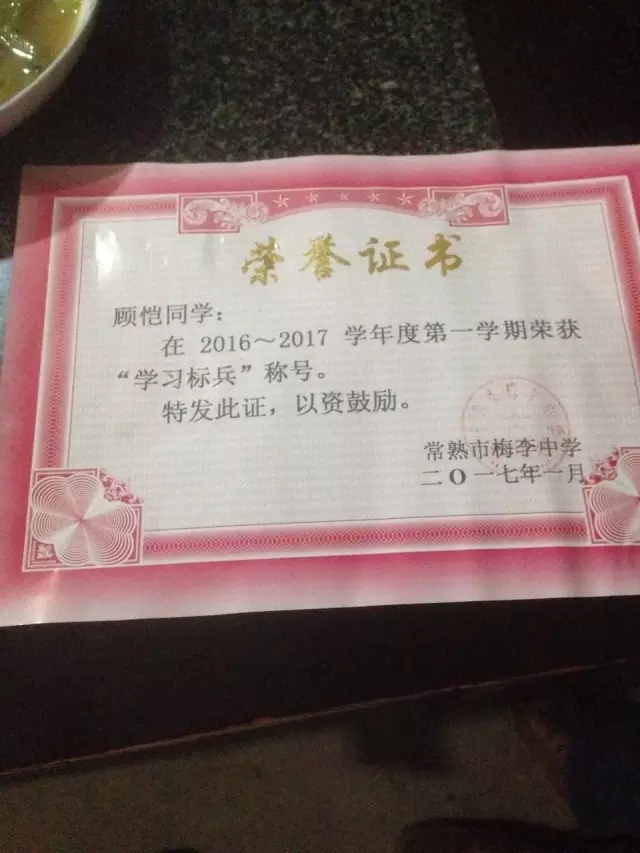 荣誉证书
顾恺同学：
在 2016～2017 学年度第一学期荣获
“学习标兵”称号。
特发此证，以资鼓励。
常熟市梅李中学
二〇一七年一月